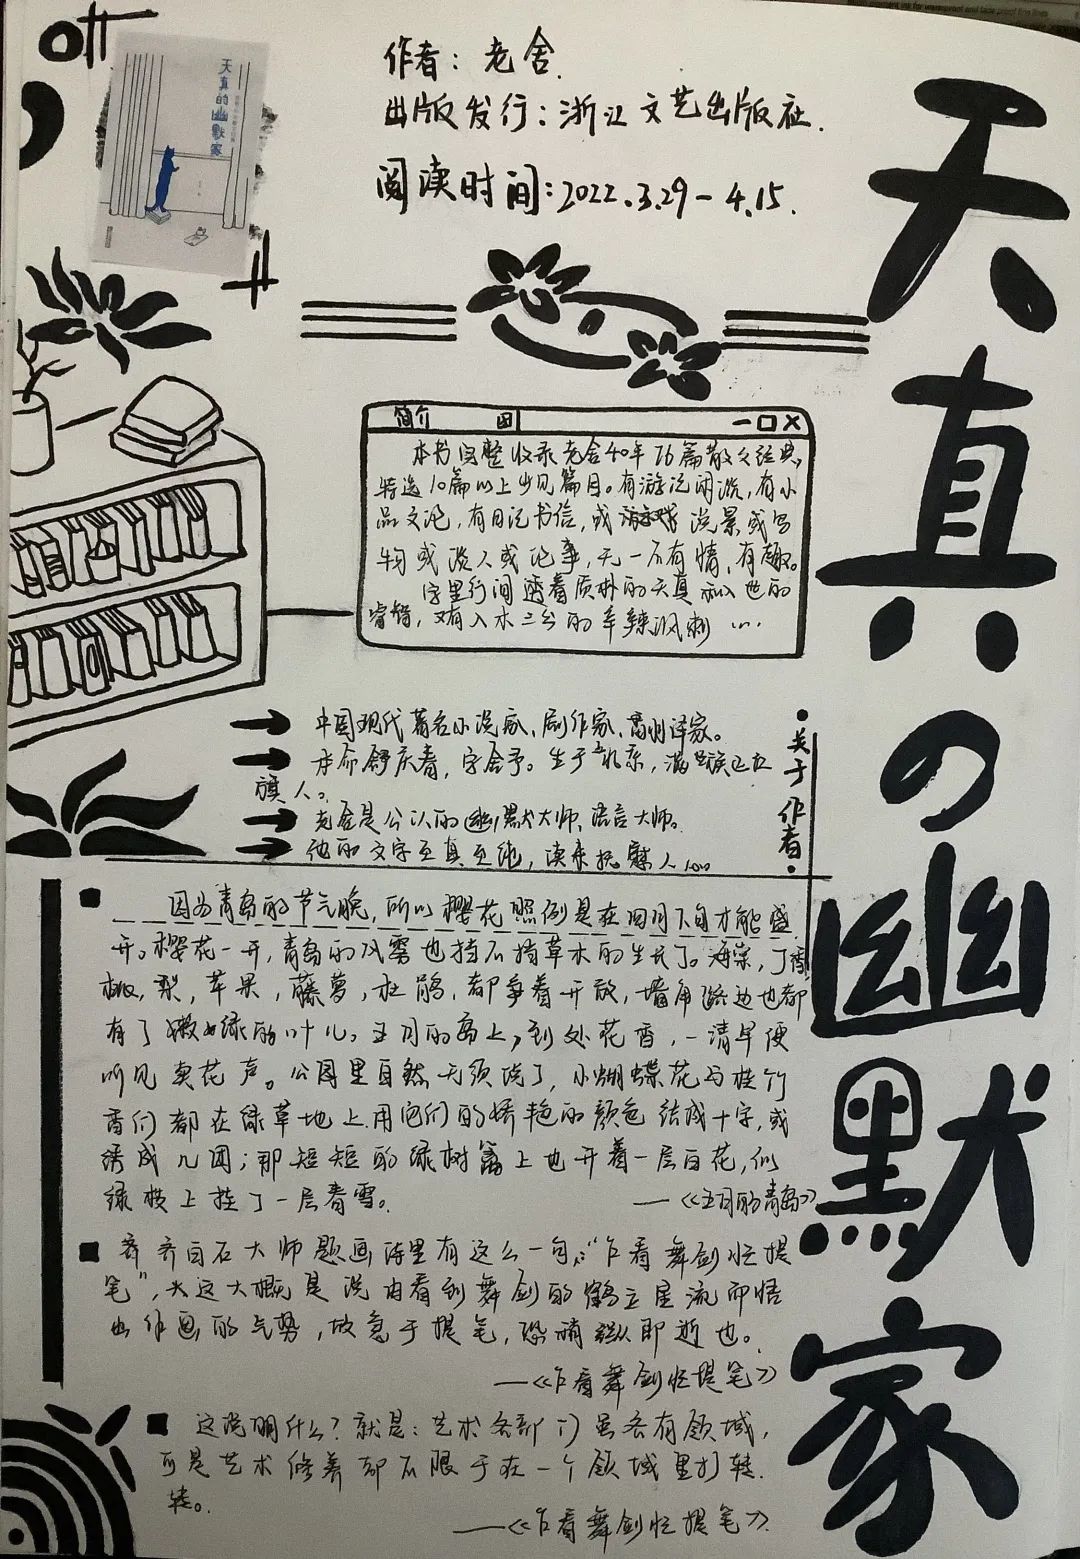 天真の幽默家
天真的幽默家
作者：老舍.
出版发行：浙江文艺出版社.
阅读时间：2022.3.29－4.15.
简介
本书完整收录老舍40年76篇散文经典,
特选10篇以上少见篇目。有游记闲谈,有小
品文论,有日记书信,或说景或写
物或谈人或记事,无一不有情、有趣。
字里行间透着质朴的天真和入世的
睿智,又有入木三分的辛辣讽刺…
·关于作者·
→ 中国现代著名小说家、剧作家、翻译家。
→ 本命舒庆春,字舍予。生于北京,满族正红
旗人。
→ 老舍是公认的幽默大师、语言大师。
→ 他的文字至真至纯,读来抚慰人……
■ 因为青岛的节气晚,所以樱花照例是在四月下旬才能盛
开。樱花一开,青岛的风雾也挡不住草木的生长了。海棠,丁香
桃,梨,苹果,藤萝,杜鹃,都争着开放,墙角路边也都
有了嫩绿的叶儿。五月的岛上,到处花香,一清早便
听见卖花声。公园里自然无须说了,小蝴蝶花与桂竹
香们都在绿草地上用它们的娇艳的颜色结成十字,或
绣成几团;那短短的绿树篱上也开着一层白花,似
绿枝上挂了一层春雪。
——《五月的青岛》
■ 齐白石大师题画诗里有这么一句:“乍看舞剑忙提
笔”,大这大概是说由看到舞剑的鹤立星流而悟
出作画的气势,故急于提笔,恐稍纵即逝也。
——《乍看舞剑忙提笔》
■ 这说明什么?就是:艺术各部门虽各有领域,
可是艺术修养却不限于在一个领域里打转
转。
——《乍看舞剑忙提笔》